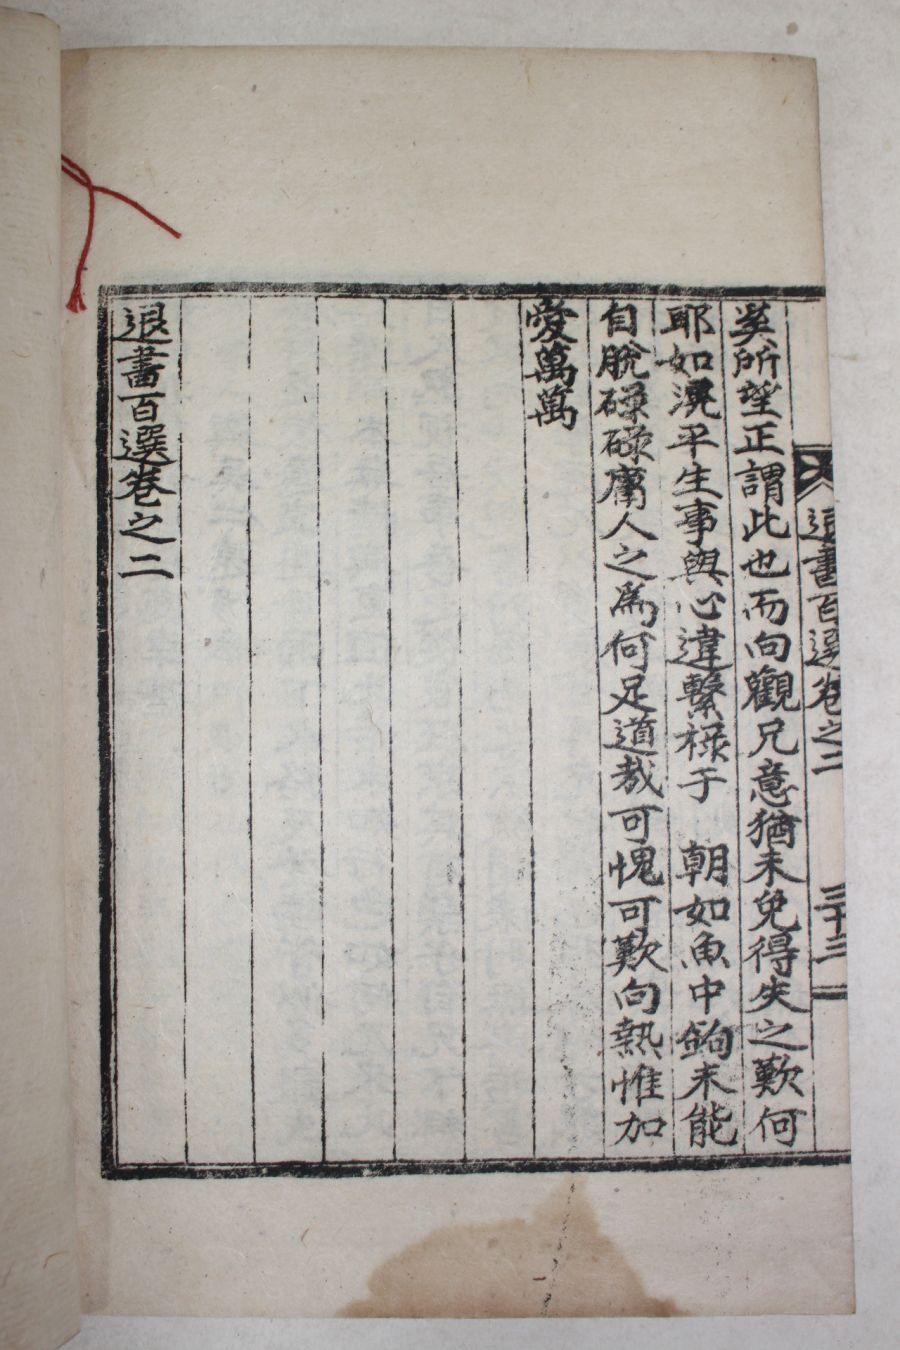 退書百選卷之二 三十三
矣所望正謂此也而向觀兄意猶未免得失之歎何
耶如滉平生事與心違繫祿于 朝如魚中鉤未能
自脫碌碌庸人之爲何足道哉可愧可歎向熱惟加
愛萬萬
退書百選卷之二